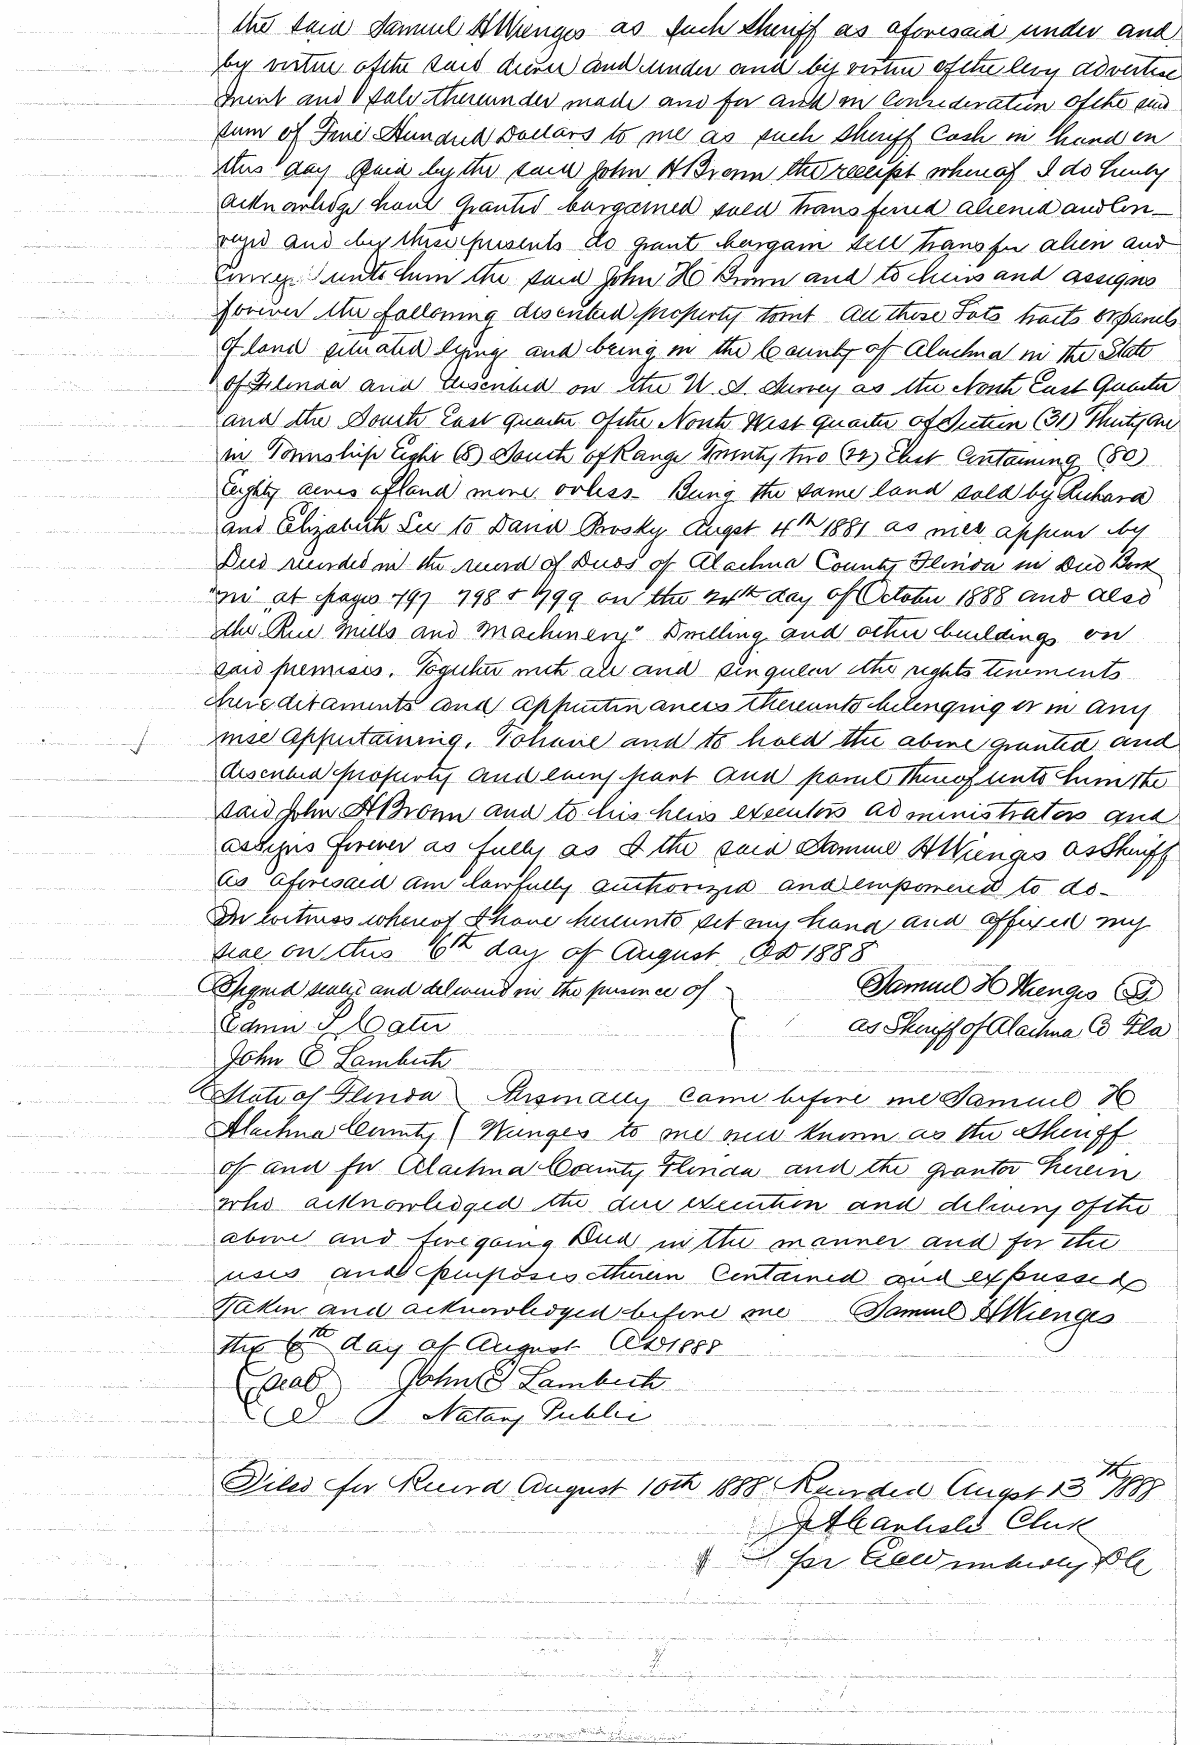 the said Samuel H Wienges as such Sheriff as aforesaid under and
by virtue of the said decree and under and by virtue of the levy advertise
ment and sale thereunder made and for and in Consideration of the said
sum of Five Hundred Dollars to me as such Sheriff Cash in hand on
this day paid by the said John H Brown the receipt whereof I do hereby
acknowledge have granted bargained sold transferred aliened and Con-
veyed and by these presents do grant bargain sell transfer alien and
Convey unto him the said John H Brown and to heirs and assigns
forever the following described property towit All those Lots tracts or parcels
of land situated lying and being in the County of Alachua in the State
of Florida and described on the U. S. Survey as the North East Quarter
and the South East quarter of the North West quarter of Section (31) Thirty One
in Township Eight (8) South of Range Twenty two (22) East Containing (80)
Eighty acres of land more or less- Being the same land sold by Richard
and Elizabeth Lee to David Prosky Augst 4th 1881 as will appear by
Deed recorded in the record of Deeds of Alachua County Florida in Deed Book
"M" at pages 797 798 & 799 on the 24th day of October 1888 and also
the "Rice Mills and Machinery" Dwelling and other buildings on
said premises. Together with all and singular the rights tenements
hereditaments and appurtinances thereunto belonging or in any
wise appurtaining. To have and to hold the above granted and
described property and every part and parcel thereof unto him the
said John H Brown and to his heirs executors administrators and
assigns forever as fully as I the said Samuel H Wienges as Sheriff
as aforesaid am lawfully authorized and empowered to do-
In witness whereof I have hereunto set my hand and affixed my
seal on this 6th day of August AD 1888
Signed sealed and delivered in the presence of Samuel H Wienges
Edwin P Cater as Sheriff of Alachua Co Fla
John E Lambeth
State of Florida Personally came before me Samuel H
Alachua County Wienges to me well known as the Sheriff
of and for Alachua County Florida and the grantor herein
who acknowledged the due execution and delivery of the
above and foregoing Deed in the manner and for the
uses and purposes therein Contained and expressed
Taken and acknowledged before me Samuel H Wienges
this 6th day of August AD 1888
(seal) John E Lambeth
Notary Public
Filed for Record August 10th 1888 Recorded Augst 13th 1888
J A Carlisle Clerk
per